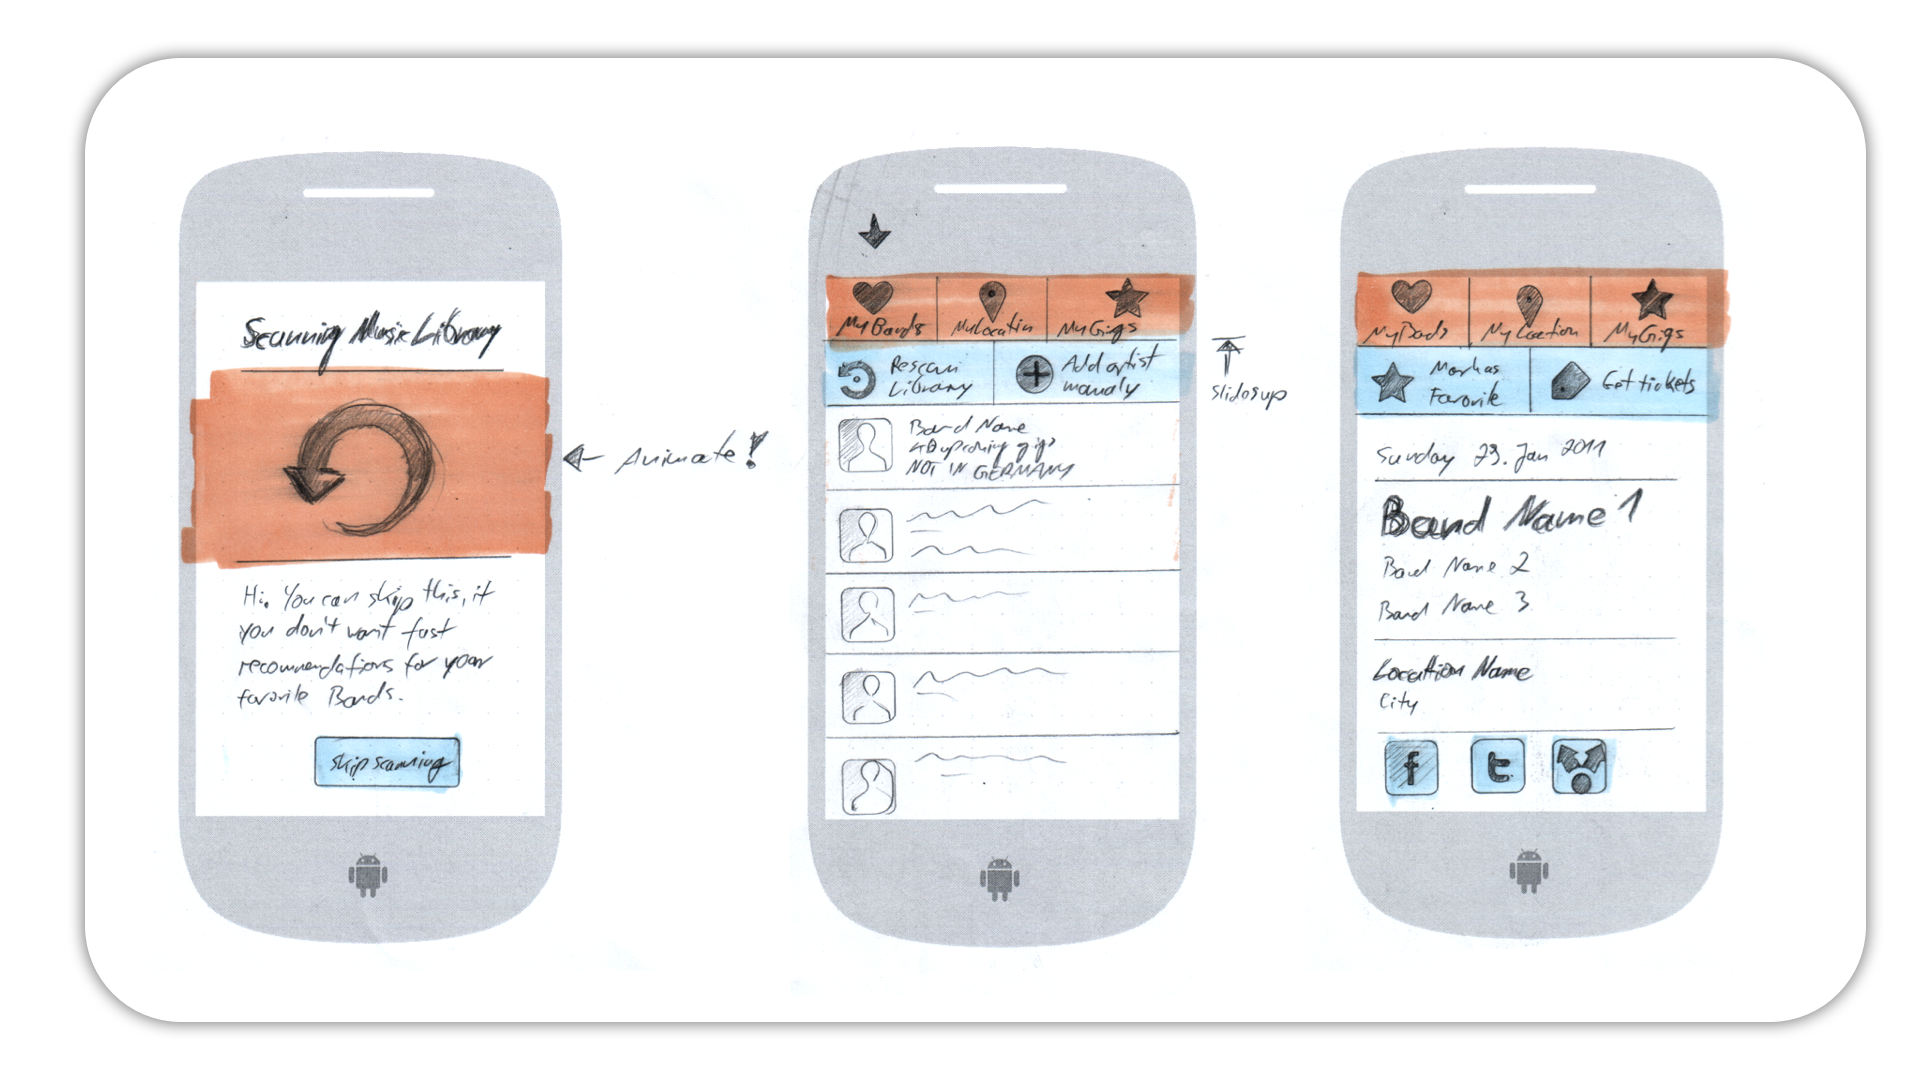 Scanning Music Library
Hi. You can skip this, if
you don't want fast
recommendations for your
favorite Bands.
skip scanning
Animate!
My Bands
My Location
My Gigs
Rescan
Library
Add artist
manaly
Band Name
48 upcoming gigs
NOT IN GERMANY
slides up
My Bads
My Location
My Gigs
Mark as
Favorite
Get tickets
Sunday 23. Jan 2011
Band Name 1
Band Name 2
Band Name 3
Location Name
City
f
t